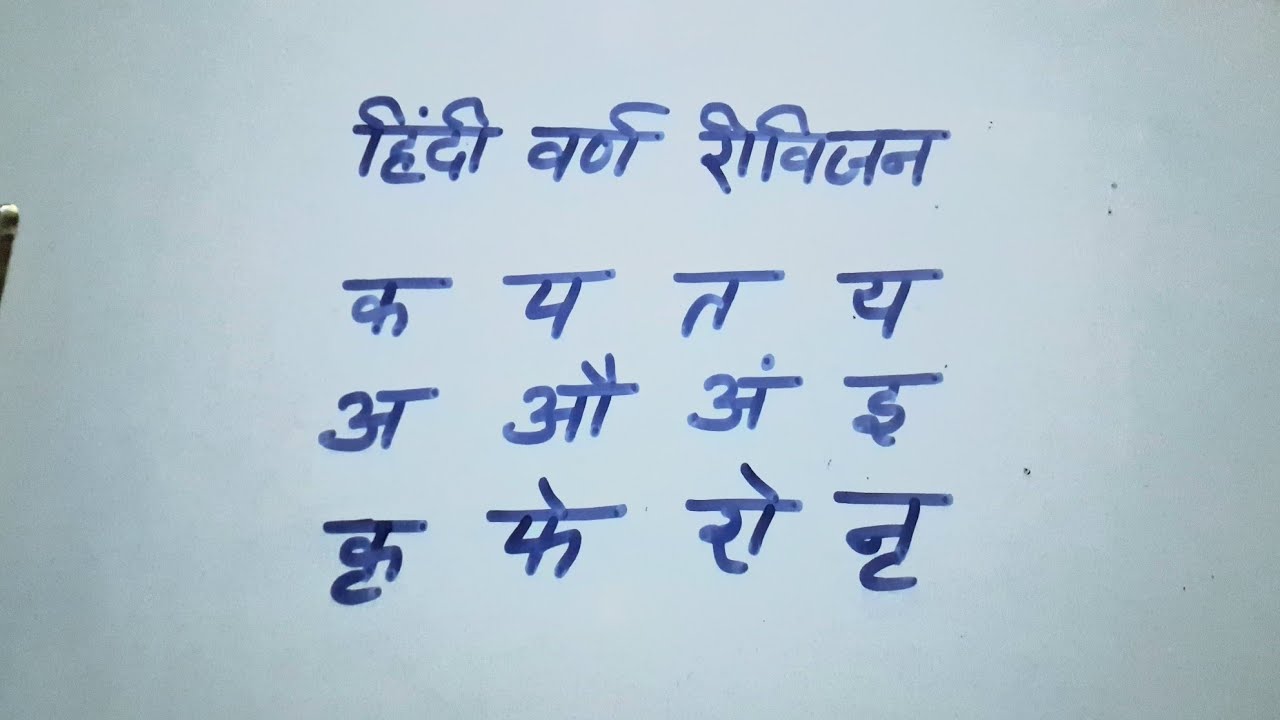 हिंदी वर्ण रीविजन
क प त य
अ औ अं इ
कृ फे रो नृ